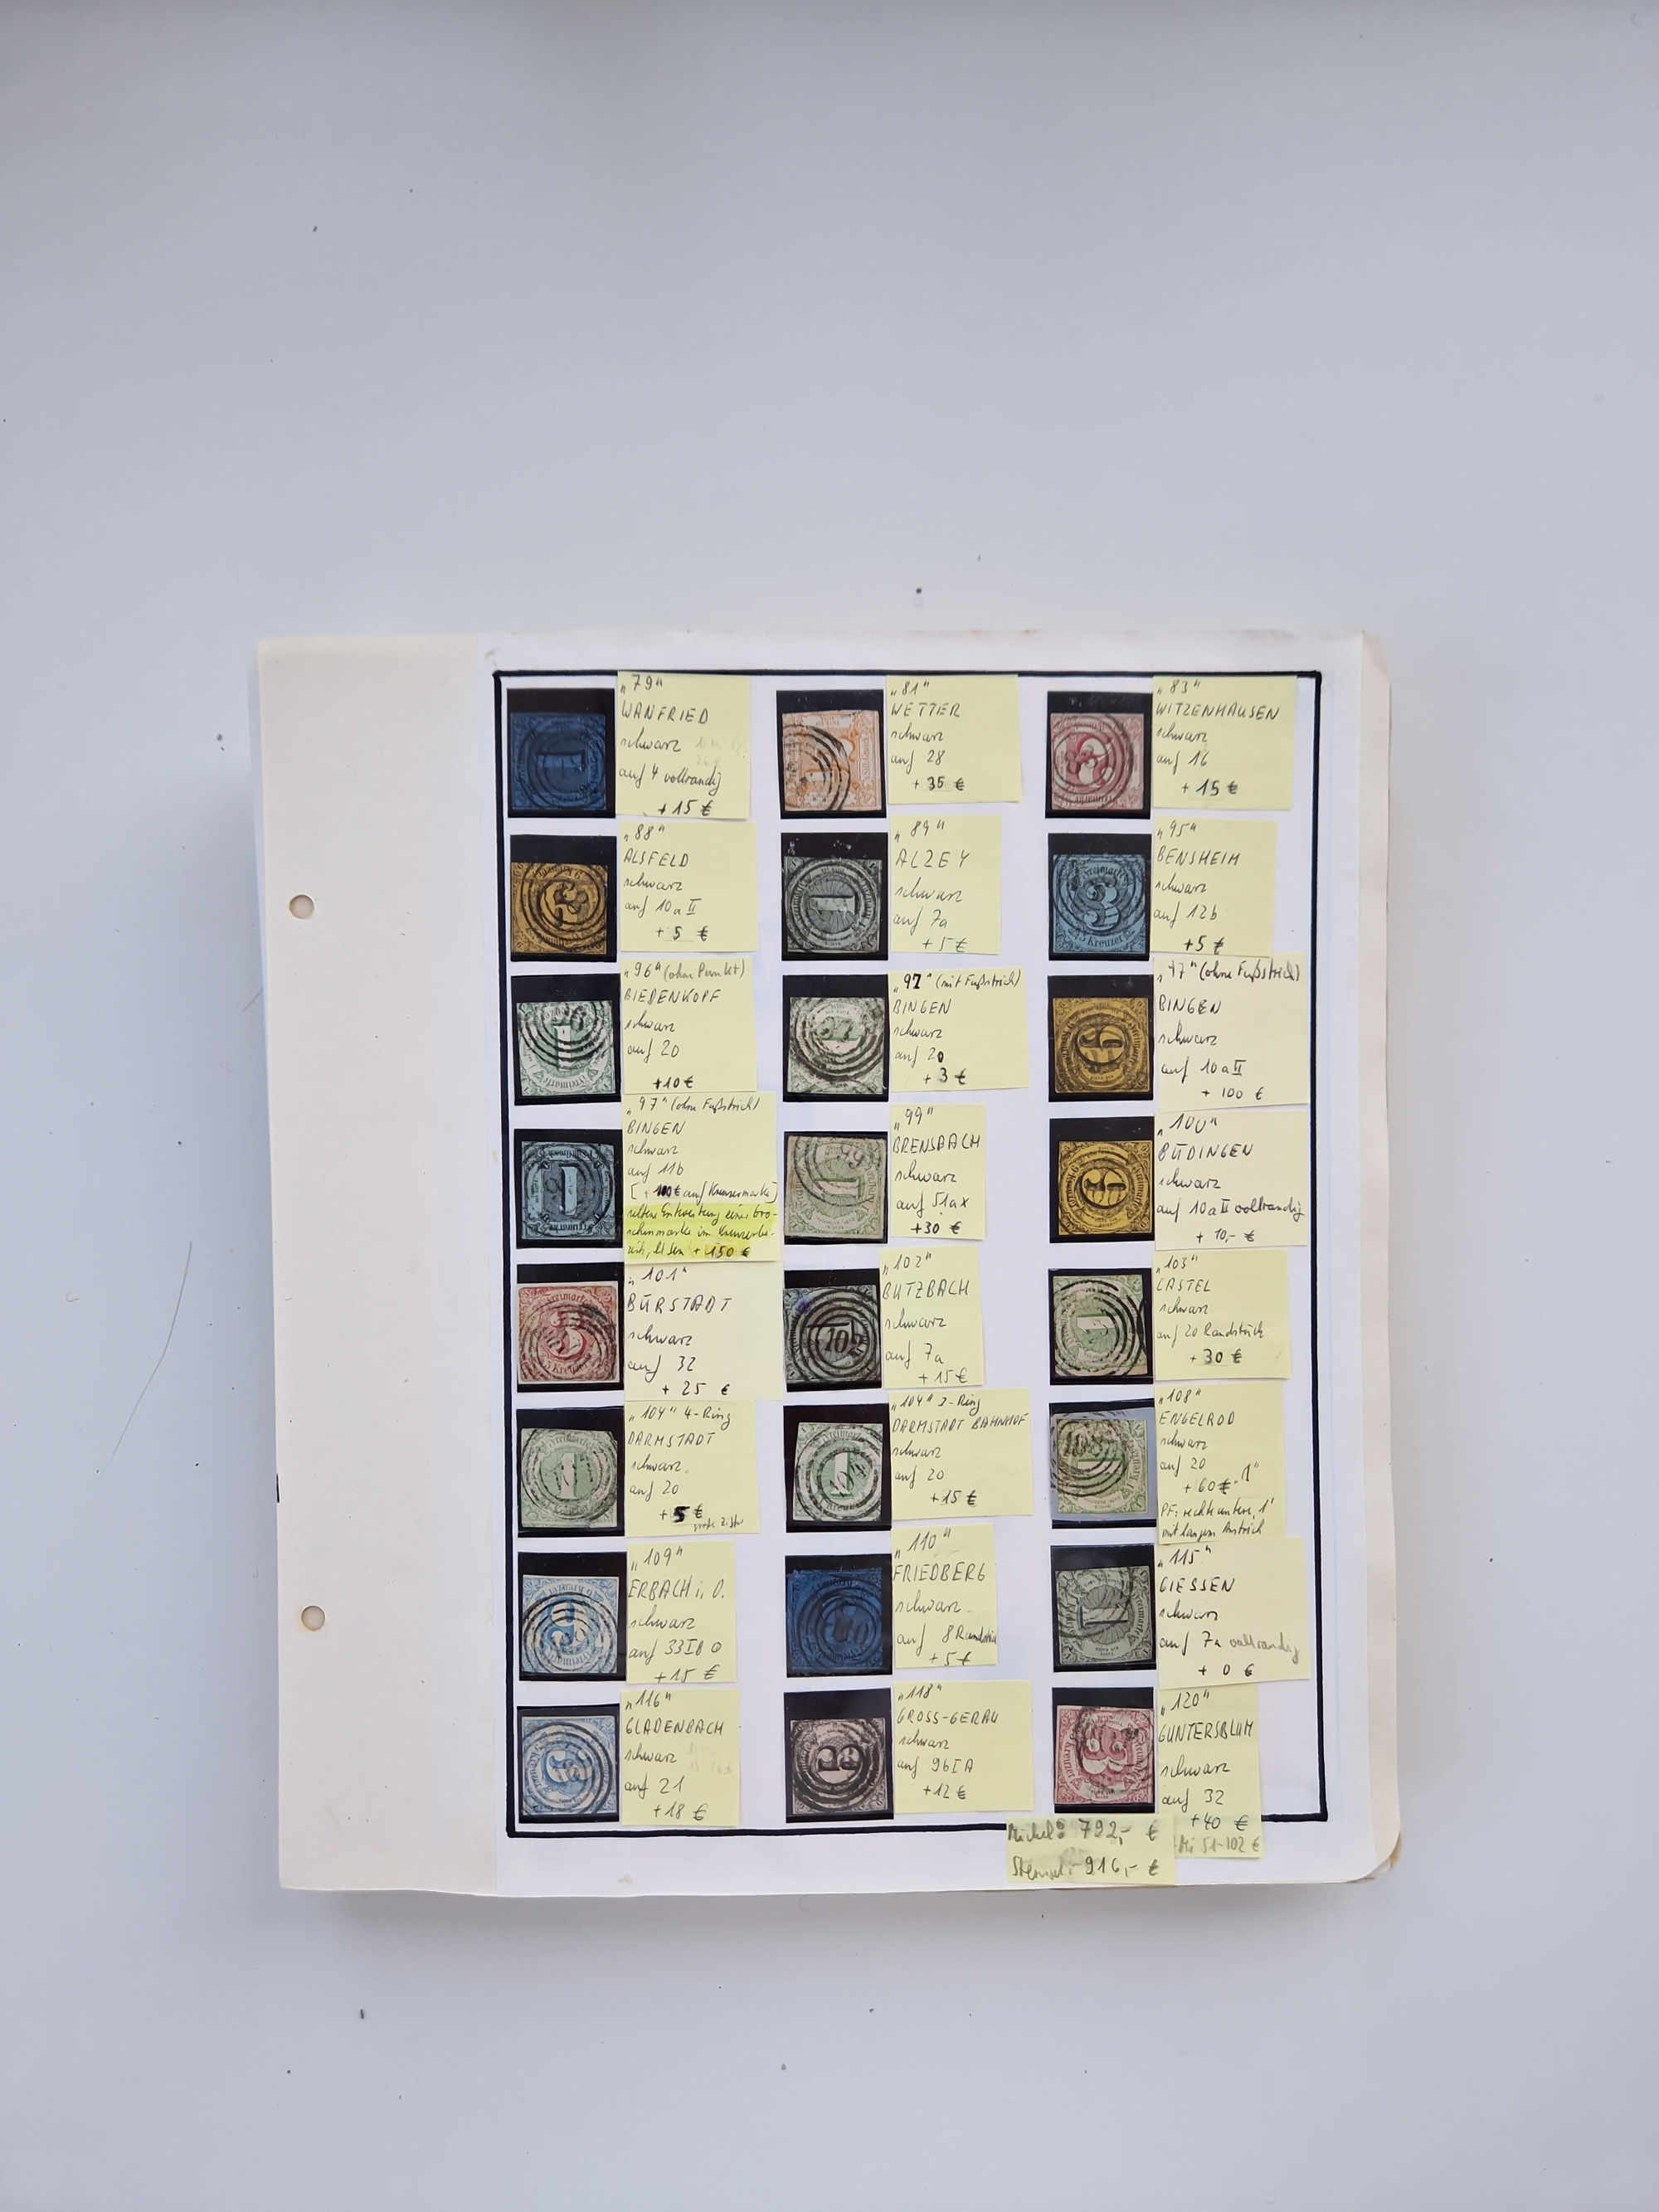 „79"
WANFRIED
schwarz
auf 4 vollrandig
+15 €
„81"
WETTER
schwarz
auf 28
+ 35 €
„83"
WITZENHAUSEN
schwarz
auf 16
+ 15 €
„88"
ALSFELD
schwarz
auf 10a II
+ 5 €
„89"
ALZEY
schwarz
auf 7a
+ 5 €
„95"
BENSHEIM
schwarz
auf 12b
+5 €
„96" (ohne Punkt)
BIEDENKOPF
schwarz
auf 20
+10 €
„97" (mit Fußstrich)
BINGEN
schwarz
auf 20
+ 3 €
(ohne Fußstrich)
BINGEN
schwarz
auf 10a II
+ 100 €
„97" (ohne Fußstrich)
BINGEN
schwarz
auf 11b
[+ 100 € auf Kreuzermarke]
seltene Entwertung einer Gro-
schenmarke im Kreuzerbe-
+ 150 €
„99"
BRENSBACH
schwarz
auf 51ax
+30 €
„100"
BÜDINGEN
schwarz
auf 10a II vollrandig
+ 10,- €
„101"
BÜRSTADT
schwarz
auf 32
+ 25 €
„102"
BUTZBACH
schwarz
auf 7a
+ 15 €
„103"
CASTEL
schwarz
auf 20 Randstück
+ 30 €
„104" 4-Ring
DARMSTADT
schwarz
auf 20
+ 5 €
große Ziffer
„104" 3-Ring
DARMSTADT BAHNHOF
schwarz
auf 20
+15 €
„108"
ENGELROD
schwarz
auf 20
+ 60 €
PF: rechte untere „1"
mit langem Anstrich
„109"
ERBACH i. O.
schwarz
auf 33
+ 15 €
„110"
FRIEDBERG
schwarz
auf 8 Randstück
+ 5 €
„115"
GIESSEN
schwarz
auf 7a vollrandig
+ 0 €
„116"
GLADENBACH
schwarz
auf 21
+ 18 €
„118"
GROSS-GERAU
schwarz
auf 9b I A
+ 12 €
„120"
GUNTERSBLUM
schwarz
auf 32
+40 €
Mi 51-102 €
Michel: 792,- €
Stempel: 916,- €